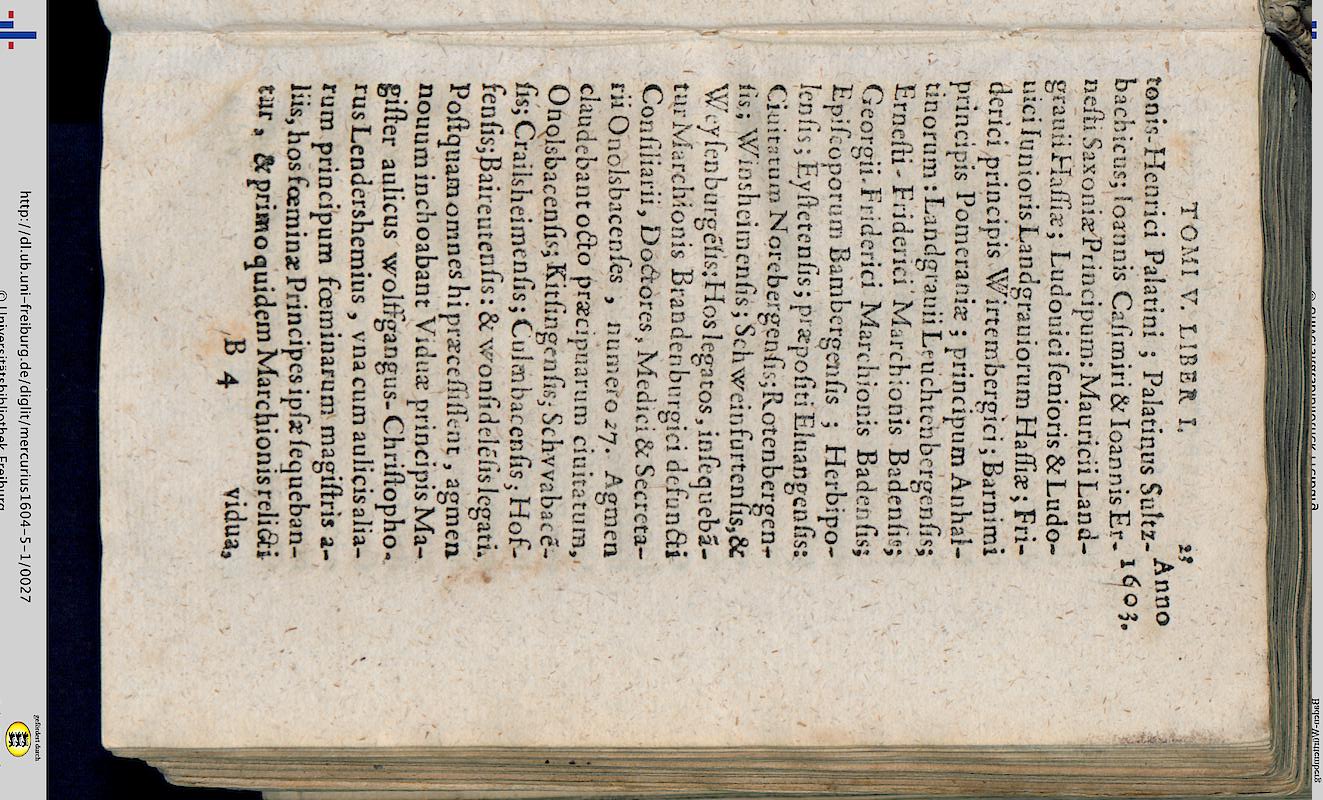 TOMI V. LIBER I. 23
tonis-Henrici Palatini ; Palatinus Sultz- Anno
bachicus; Ioannis Casimiri & Ioannis Er- 1603.
nesti Saxoniæ Principum: Mauricii Land-
grauii Hassiæ; Ludouici senioris & Ludo-
uici Iunioris Landgrauiorum Hassiæ; Fri-
derici principis Wirtembergici; Barnimi
principis Pomeraniæ ; principum Anhal-
tinorum : Landgrauii Leuchtenbergensis;
Ernesti - Friderici Marchionis Badensis;
Georgii-Friderici Marchionis Badensis;
Episcoporum Bambergensis ; Herbipo-
lensis ; Eystetensis; præpositi Eluangensis:
Ciuitatum Norebergensis; Rotenbergen-
sis; Winsheimensis; Schweinfurtensis, &
Weysenburgẽsis: Hos legatos, insequebã-
tur Marchionis Brandenburgici defuncti
Consiliarii, Doctores, Medici & Secreta-
rii Onolsbacenses , numero 27. Agmen
claudebant octo præcipuarum ciuitatum,
Onolsbacensis; Kitsingensis; Schvvabacẽ-
sis; Crailsheimensis; Culmbacensis; Hof-
fensis; Baireutensis: & wonsidelẽsis legati.
Postquam omnes hi præcessissent , agmen
nouum inchoabant Viduæ principis Ma-
gister aulicus wolffgangus-Christopho-
rus Lendershemius , vna cum aulicis alia-
rum principum fœminarum magistris a-
liis, hos fœminæ Principes ipsæ sequeban-
tur, & primo quidem Marchionis relicti
B 4 vidua,
http://dl.ub.uni-freiburg.de/diglit/mercurius1604-5-1/0027
© Universitätsbibliothek Freiburg
gefördert durch